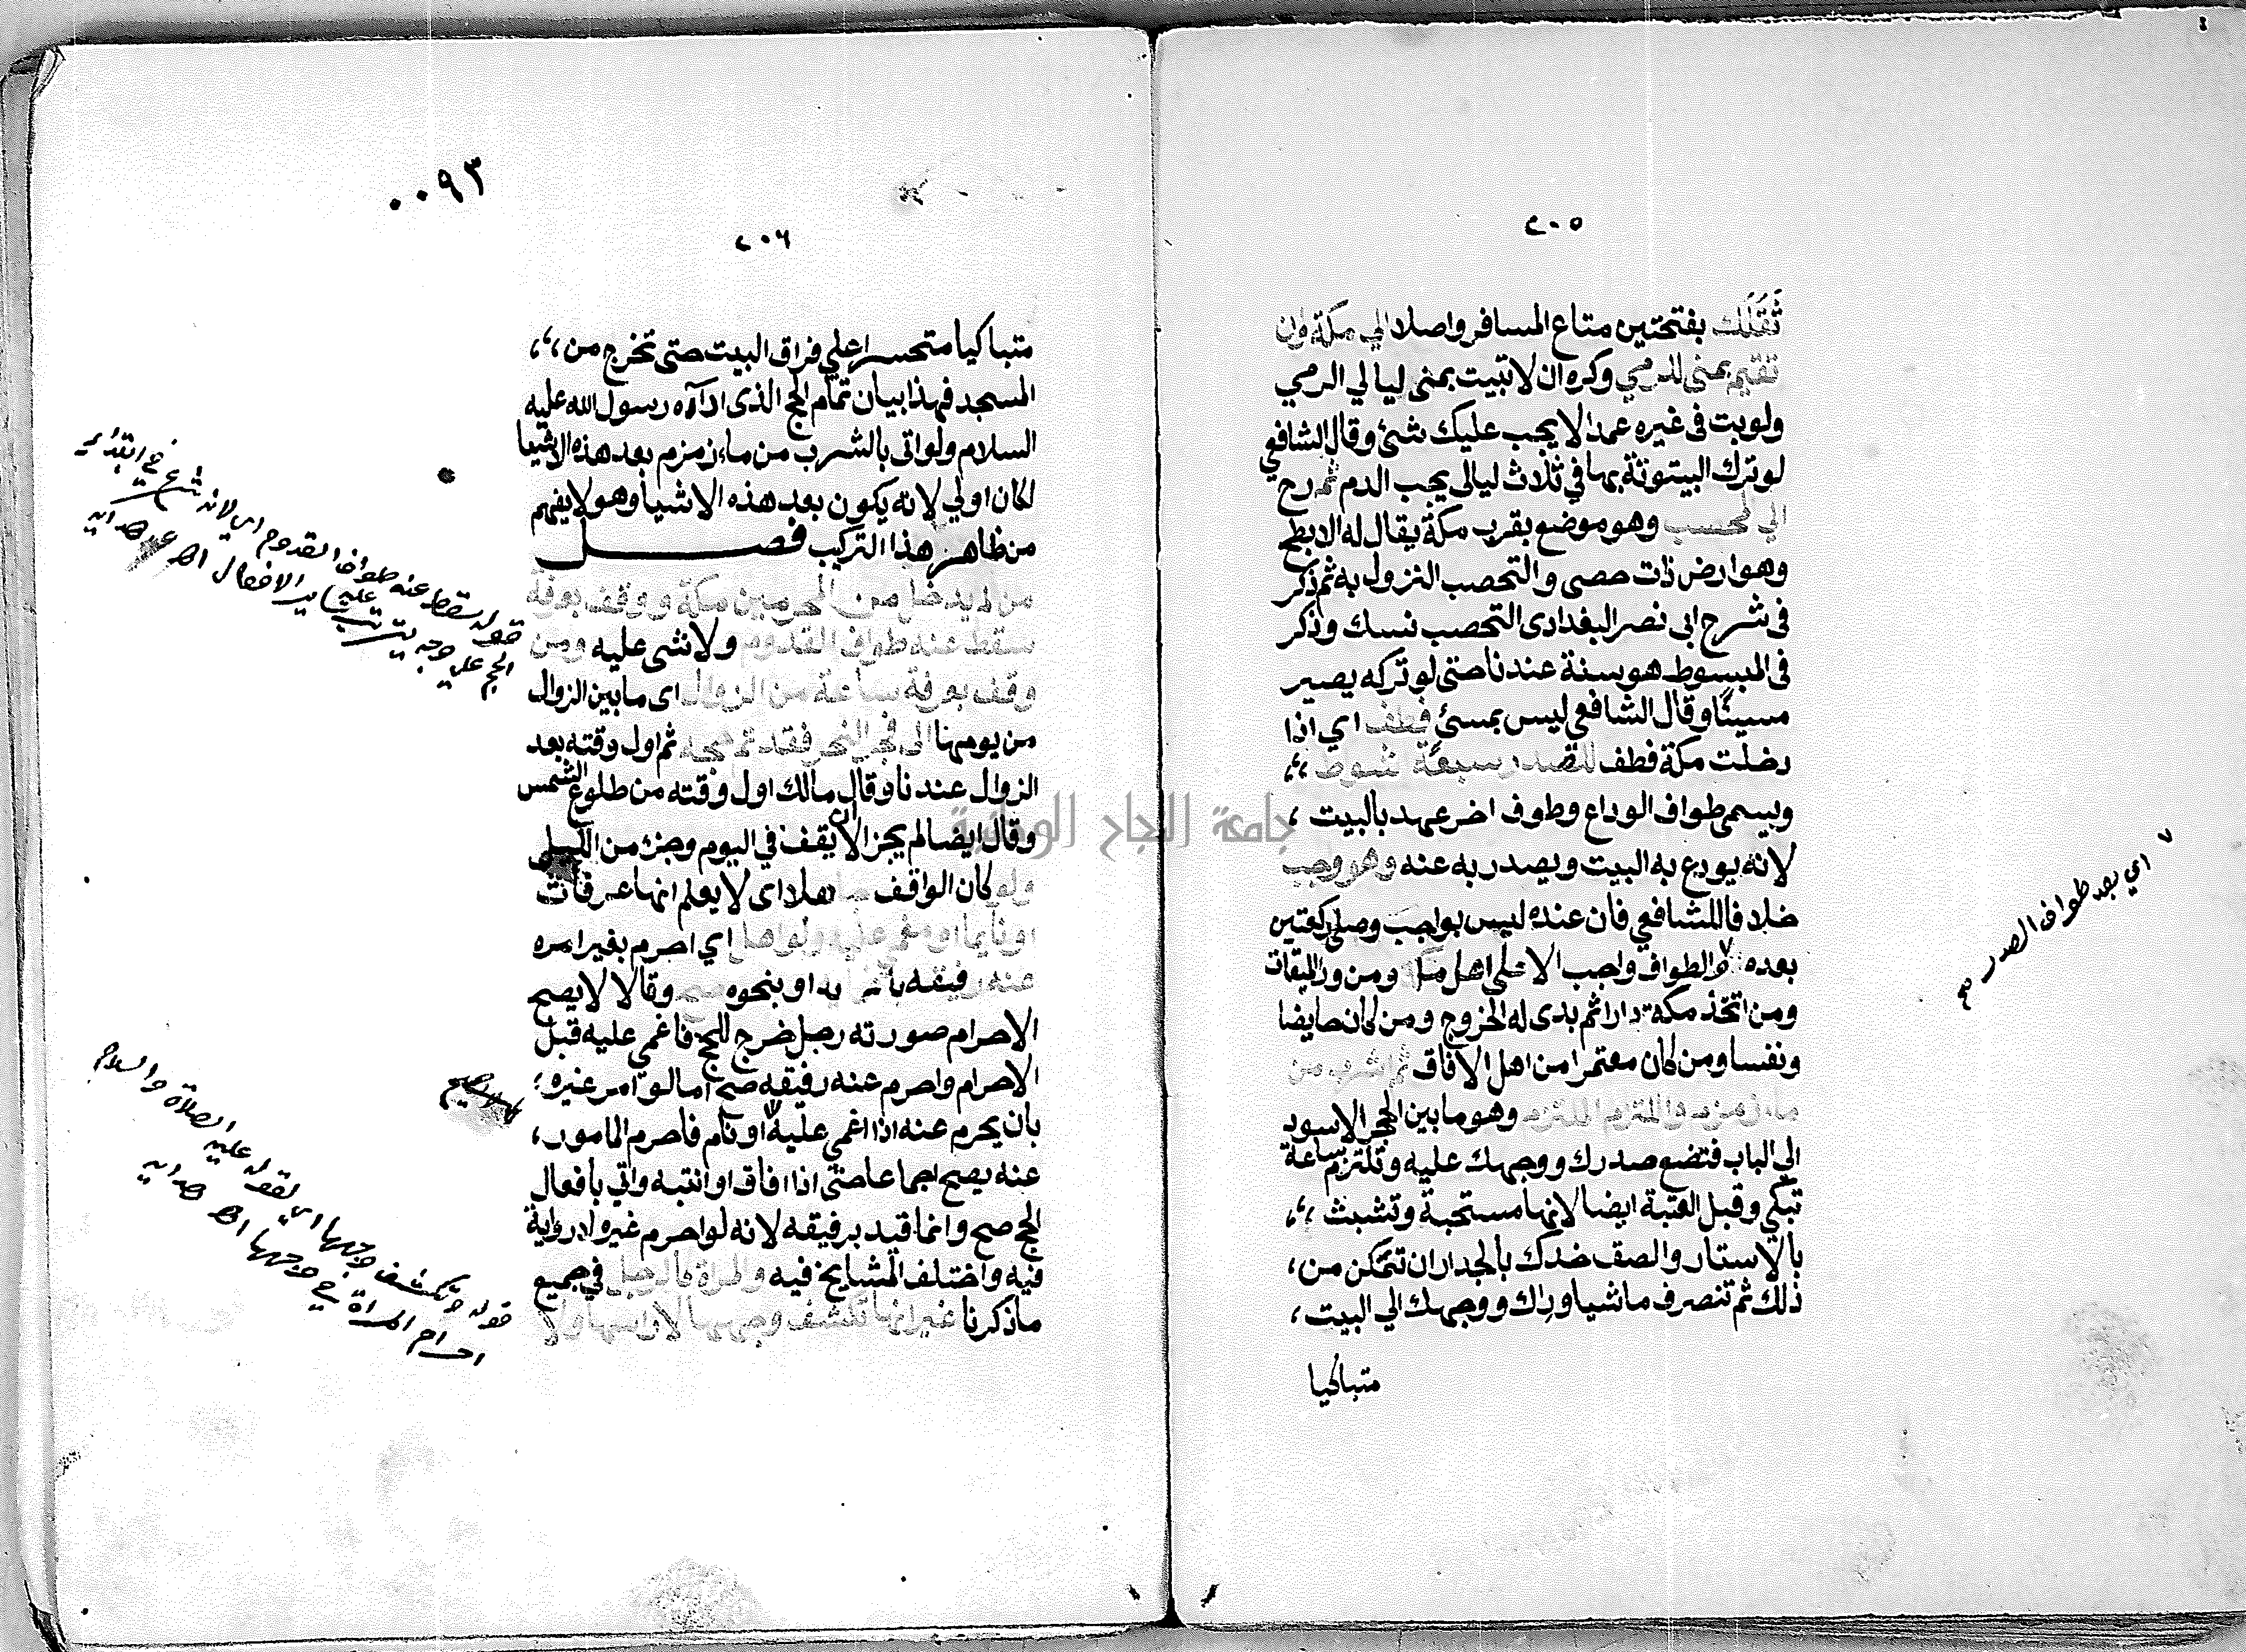 ٢٠٥
ثَقَلَك بفتحتين متاع المسافر واصلا الي مكة وان
تقيم بمنى للرمي وكره ان لا تبيت بمنى ليالي الرمي
ولوبت في غيره عمدا لا يجب عليك شئ وقال الشافعي
لو ترك البيتوتة بها في ثلاث ليالي يجب الدم ثم رح
الي المحسب وهو موضع بقرب مكة يقال له الابطح
وهو ارض ذات حصى والتحصب النزول به ثم ذكر
في شرح ابي نصر البغدادى التحصب نسك وذكر
في المبسوط هو سنة عندنا حتى لو تركه يصير
مسيئا وقال الشافعي ليس بمسئ فطف اي اذا
دخلت مكة فطف للصدر سبعة شوط
ويسمى طواف الوداع وطوف اخر عهد بالبيت
لانه يودع به البيت ويصدر به عنه وهو وجب
خلافا للشافعي فان عنده ليس بواجب وصلي ركعتين
بعده والطواف واجب الا علي اهل مكة ومن ورا الميقات
ومن اتخذ مكة دارا ثم بدى له الخروج ومن كان حايضا
ونفسا ومن كان معتمرا من اهل الافاق ثم اشرب من
ماء زمزم والتزم الملتزم وهو ما بين الحجر الاسود
الي الباب فتضع صدرك ووجهك عليه وتلتزم ساعة
تبكي وقبل العتبة ايضا لانها مستحبة وتشبث
بالاستار والصق خدك بالجدار ان تتمكن من
ذلك ثم تنصرف ماشيا وراك ووجهك الي البيت
متباكيا
٧ اي بعد طواف الصدر صح
٠٠٩٣
٢٠٦
متباكيا متحسرا علي فراق البيت حتى تخرج من
المسجد فهذا بيان تمام الحج الذى اداه رسول الله عليه
السلام ولو اتى بالشرب من ماء زمزم بعد هذه الاشيا
لكان اولي لانه يكون بعد هذه الاشيا وهو لا يفهم
من ظاهر هذا التركيب فصل
من لم يدخل من المحرمين مكة ووقف بعرفة
سقط عنه طواف القدوم ولا شى عليه ومن
وقف بعرفة ساعة من الزوال اى ما بين الزوال
من يومها الى فجر النحر فقد تم حجه ثم اول وقته بعد
الزوال عندنا وقال مالك اول وقته من طلوع الشمس
وقال ايضا لم يجز الا ان يقف في اليوم وجزء من الليل
ولو كان الواقف جاهلا اى لا يعلم انها عرفات
او نايما او مغمى عليه ولو اهل اي احرم بغير امره
عنه رفيقه او بنحوه صح وقالا لا يصح
الاحرام صورته رجل خرج للحج فاغمي عليه قبل
الاحرام واحرم عنه رفيقه صح اما لو امر غيره
بان يحرم عنه اذا اغمي عليه او نام فاحرم المامور
عنه يصح اجماعا حتى اذا افاق او انتبه واتي بافعال
الحج صح وانما قيد برفيقه لانه لو احرم غيره لا رواية
فيه واختلف المشايخ فيه والمراة كالرجل في جميع
ما ذكرنا غير انها تكشف وجهها لا راسها ولا
قوله سقط عنه طواف القدوم اي لانه شرع في ابتداء
الحج علي وجه يترتب عليه ساير الافعال اهـ هدايه
قوله وتكشف وجهها اي لقوله عليه الصلاة والسلام
احرام المراة في وجهها اهـ هدايه
جامعة النجاح الوطنية